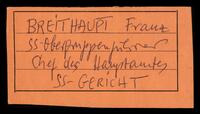 BREITHAUPT Franz
SS-Obergruppenführer
Chef des Hauptamtes
SS-GERICHT